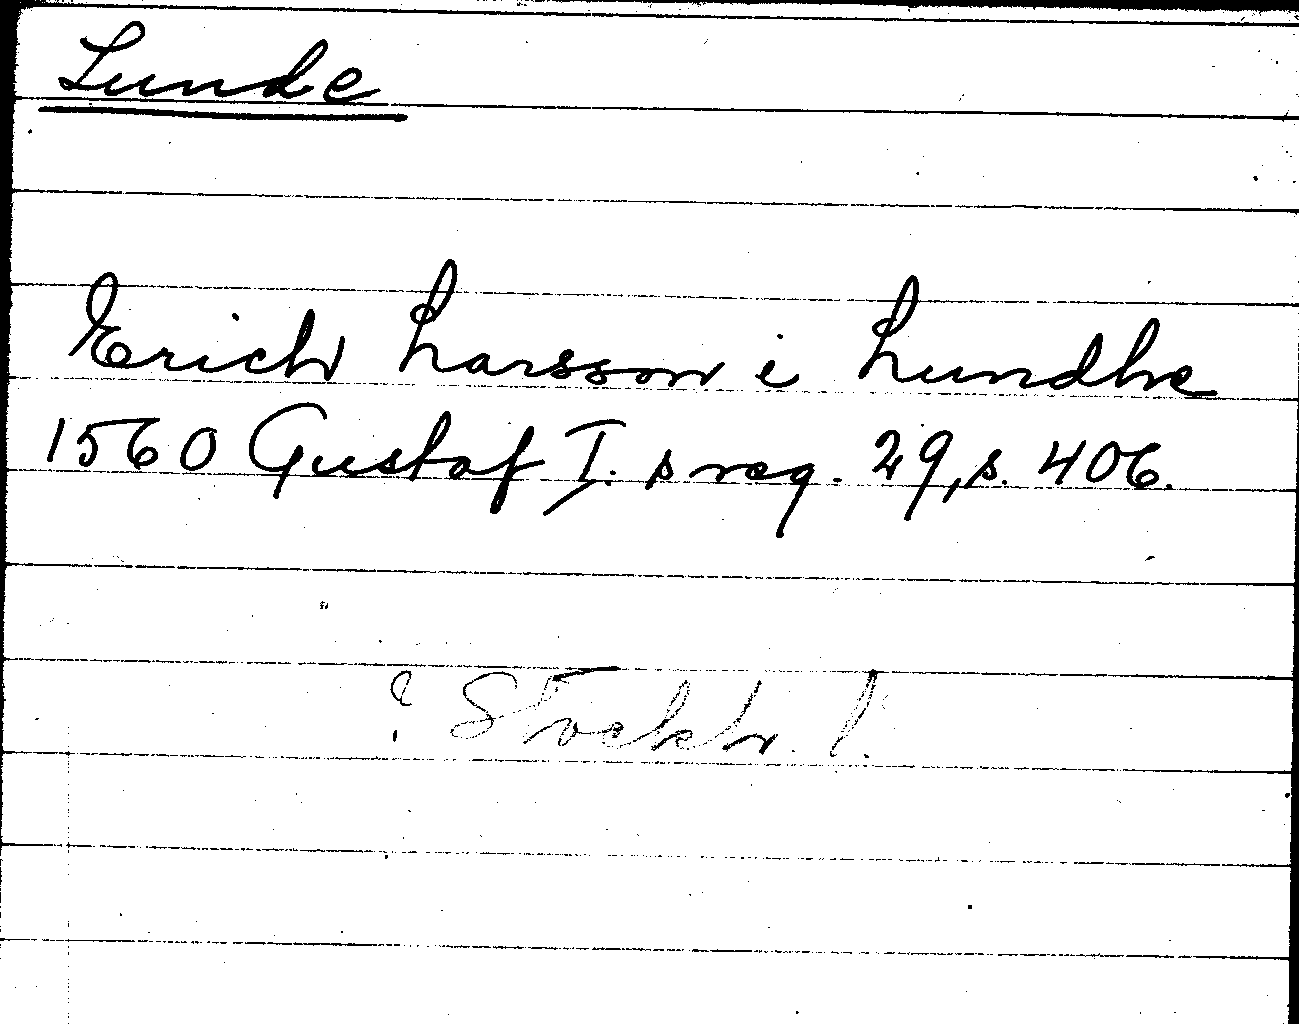 Lunde
Erich Larsson i Lundhe
1560 Gustaf I:s reg. 29, s. 406.
? Stockh. l.